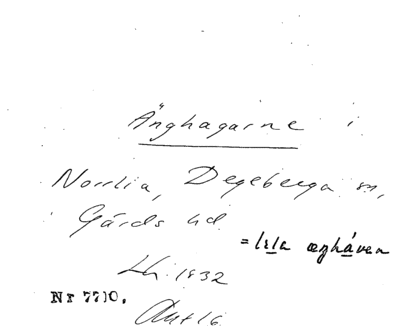 Änghagarne i
Norrlia, Degeberga sn,
Gärds hd.
= lila æŋhávεn
Lh. 1832
Nr 7710.
Akt 16